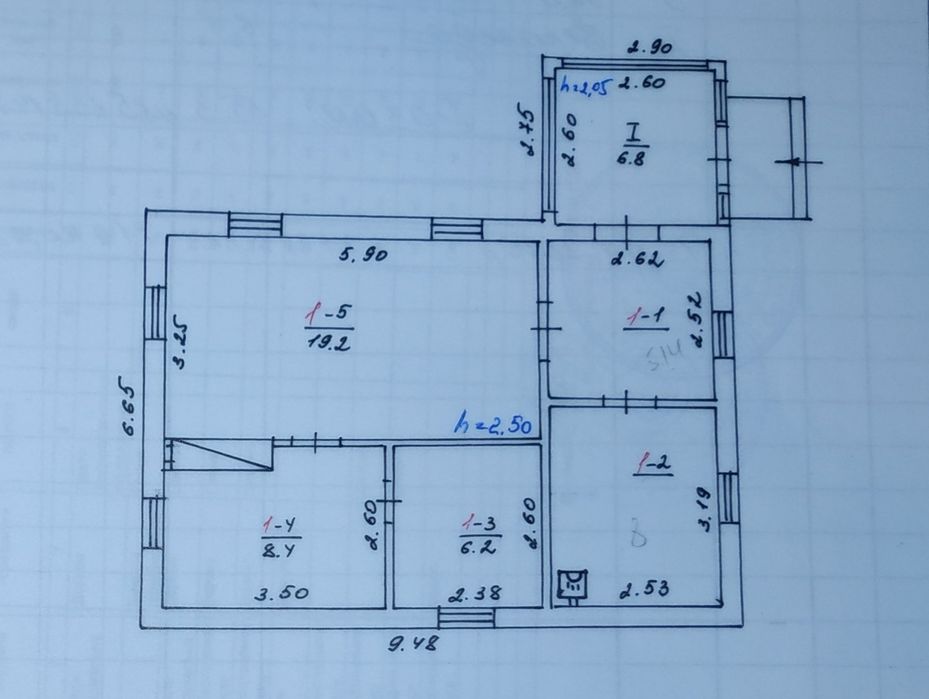 2.90
h=2,05 2.60
2.75
2.60
I
6.8
5.90
2.62
1-5
19.2
3.25
1-1
2.52
6.65
h=2.50
1-2
1-4
8.4
2.60
1-3
6.2
2.60
8
3.19
3.50
2.38
2.53
9.48